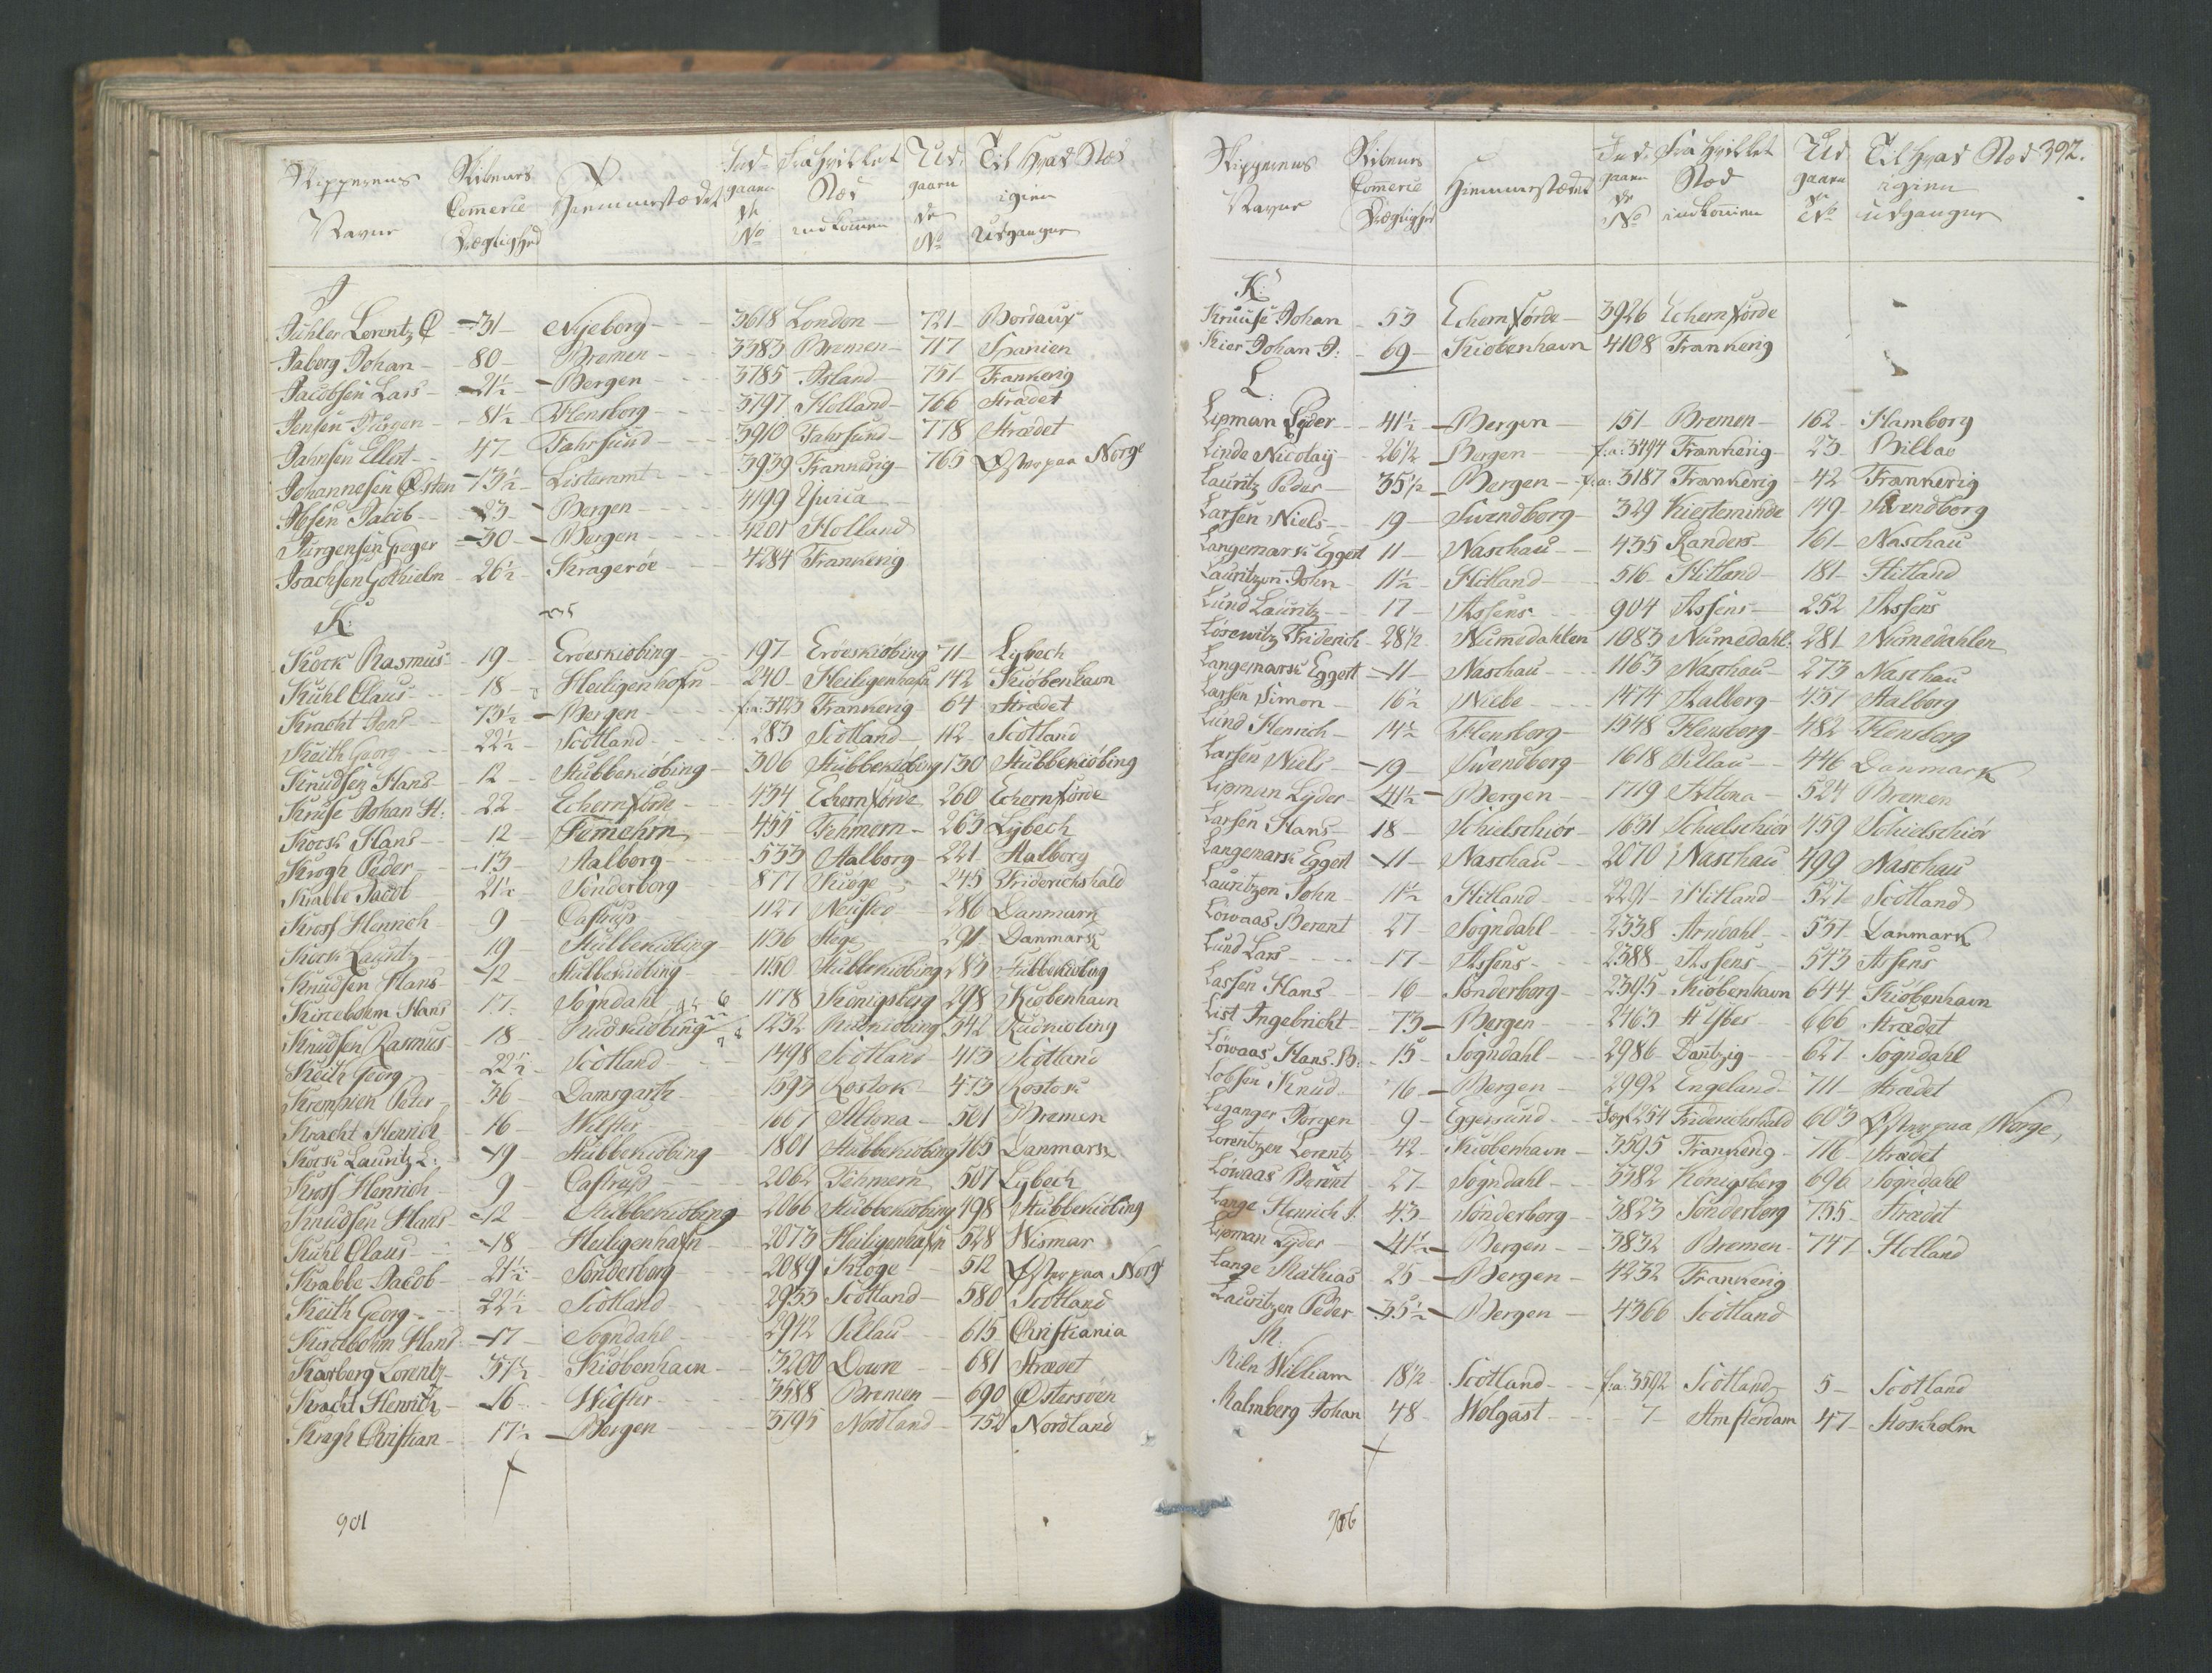 Skipperens Navne Skibenes Commerce Drægtighed Hiemmerstædet Indgaaende No Fra Hvilket Stæd indkommen Udgaaende No Til Hvad Stæd igien Udganger
J
Jühler Lorentz C 31 Nyeborg 3618 London 721 Bordaux
Jaborg Johan 80 Bremen 3383 Bremen 717 Spanien
Jacobsen Lars 21½ Bergen 3785 Island 751 Frankerig
Jensen Jürgen 81½ Flensborg 3797 Holland 766 Strædet
Jahnsen Ellert 47 Fahrsund 3910 Fahrsund 778 Strædet
Johannesen Østen 13½ Listeramt 3939 Frankerig 765 Øster paa Norge
Ibsen Jacob 23 Bergen 4199 Yvica
Jürgensen Geger 30 Bergen 4201 Holland
Isachsen Gothielm 26½ Kragerøe 4284 Frankerig
K:
Kock Rasmus 19 Erøeskiøbing 197 Erøeskiøbing 71 Lybech
Kühl Claus 18 Heiligenhafn 240 Heiligenhafn 142 Kiøbenhavn
Kracht Jens 73½ Bergen f:a: 3723 Frankerig 64 Strædet
Keith Georg 22½ Scotland 283 Scotland 112 Scotland
Knudsen Hans 12 Stubbekiøbing 306 Stubbekiøbing 130 Stubbekiøbing
Kruse Johan H: 22 Echernförde 434 Echernförde 260 Echernförde
Kock Hans 12 Femehrn 455 Fehmern 263 Lybech
Krogh Peder 13 Aalborg 533 Aalborg 221 Aalborg
Krabbe Jacob 21½ Sönderborg 877 Kiøge 245 Friderichshald
Kross Henrich 9 Castrup 1127 Neusted 286 Danmark
Kock Lauritz 19 Stubbekiøbing 1136 Stege 291 Danmark
Knudsen Hans 12 Stubbekiøbing 1150 Stubbekiøbing 283 Stubbekiøbing
Kircebohm Hans 17 Sogndahl 1178 Königsberg 298 Kiøbenhavn
Knudsen Rasmus 18 Rudkiøbing 1232 Rudkiøbing 342 Rudkiøbing
Keith Georg 22½ Scotland 1498 Scotland 413 Scotland
Krempien Peter 36 Damsgarth 1593 Rostok 473 Rostok
Kracht Henrich 16 Wilster 1667 Altona 501 Bremen
Kock Lauritz L: 19 Stubbekiøbing 1801 Stubbekiøbing 465 Danmark
Kross Henrich 9 Castrup 2062 Fehmern 507 Lybech
Knudsen Hans 12 Stubbekiøbing 2066 Stubbekiøbing 498 Stubbekiøbing
Kühl Claus 18 Heiligenhafn 2073 Heiligenhafn 528 Wismar
Krabbe Jacob 21½ Sönderborg 2089 Kiøge 512 Øster paa Norge
Keith Georg 22½ Scotland 2933 Scotland 580 Scotland
Kircebohm Hans 17 Sogndahl 2942 Pillau 615 Christiania
Karberg Lorentz 37½ Kiøbenhavn 3200 Douvre 681 Strædet
Kracht Henrich 16 Wilster 3588 Bremen 690 Østersøen
Kragh Christian 17½ Bergen 3795 Nordland 752 Nordland
901
Skipperens Navne Skibenes Commerce Drægtighed Hiemmerstædet Indgaaende No Fra Hvilket Stæd indkommen Udgaaende No Til Hvad Stæd igien udganger 392.
K:
Kruuse Johan 53 Echernförde 3926 Echernförde
Kier Johan J: 69 Kiøbenhavn 4108 Frankerig
L:
Lipman Lyder 41½ Bergen 151 Bremen 162 Hamborg
Linde Nicolaij 26½ Bergen f:a: 3494 Frankerig 23 Bilbao
Lauritz Peder 35½ Bergen f:a: 3187 Frankerig 42 Frankerig
Larsen Niels 19 Svendborg 329 Kierteminde 149 Svendborg
Langemark Eggert 11 Naschau 435 Randers 161 Naschau
Lauritzen John 11½ Hitland 516 Hitland 181 Hitland
Lund Lauritz 17 Assens 904 Assens 252 Assens
Lösewitz Friderich 28½ Numedahlen 1083 Numedahl: 281 Numedahlen
Langemark Eggert 11 Naschau 1163 Naschau 273 Naschau
Larsen Simon 16½ Niebe 1474 Aalborg 431 Aalborg
Lund Henrich 14½ Flensborg 1548 Flensborg 482 Flensborg
Larsen Niels 19 Svendborg 1618 Pillau 446 Danmark
Lipman Lyder 41½ Bergen 1719 Altona 524 Bremen
Larsen Hans 18 Schielschiör 1631 Schielschiör 459 Schielschiör
Langemark Eggert 11 Naschau 2070 Naschau 499 Naschau
Lauritzen John 11½ Hitland 2291 Hitland 527 Scotland
Löwaas Berent 27 Sogndahl 2338 Arndahl 551 Danmark
Lund Lars 17 Assens 2388 Assens 543 Assens
Lassen Hans 16 Sönderborg 2395 Kiøbenhavn 644 Kiøbenhavn
List Ingebricht 73 Bergen 2463 St Ybes 666 Strædet
Löwaas Hans B: 15 Sogndahl 2986 Dantzig 627 Sogndahl
Lobsen Knud 16 Bergen 2992 Engeland 711 Strædet
Leganger Jorgen 9 Eggersund 1254 Friderichshald 603 Øster paa Norge
Lorentzen Lorentz 42 Kiøbenhavn 3595 Frankerig 716 Strædet
Löwaas Berent 27 Sogndahl 3382 Königsberg 690 Sogndahl
Lange Henrich J. 43 Sönderborg 3823 Sönderborg 755 Strædet
Lipman Lyder 41½ Bergen 3832 Bremen 747 Holland
Lange Mathias 25 Bergen 4232 Frankerig
Lauritzen Peder 35½ Bergen 4366 Scotland
M:
Miln William 18½ Scotland f:a: 3592 Scotland 5 Scotland
Malmberg Johan 48 Wolgast 7 Amsterdam 47 Stokholm